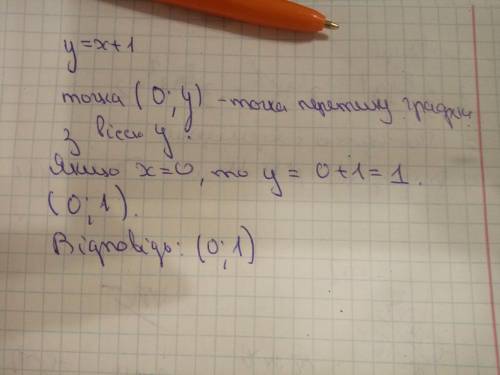 y=x+1
точка (0; y) - точка перетину графіка
з віссю y.
Якщо x=0, то y = 0+1=1.
(0; 1).
Відповідь: (0; 1)